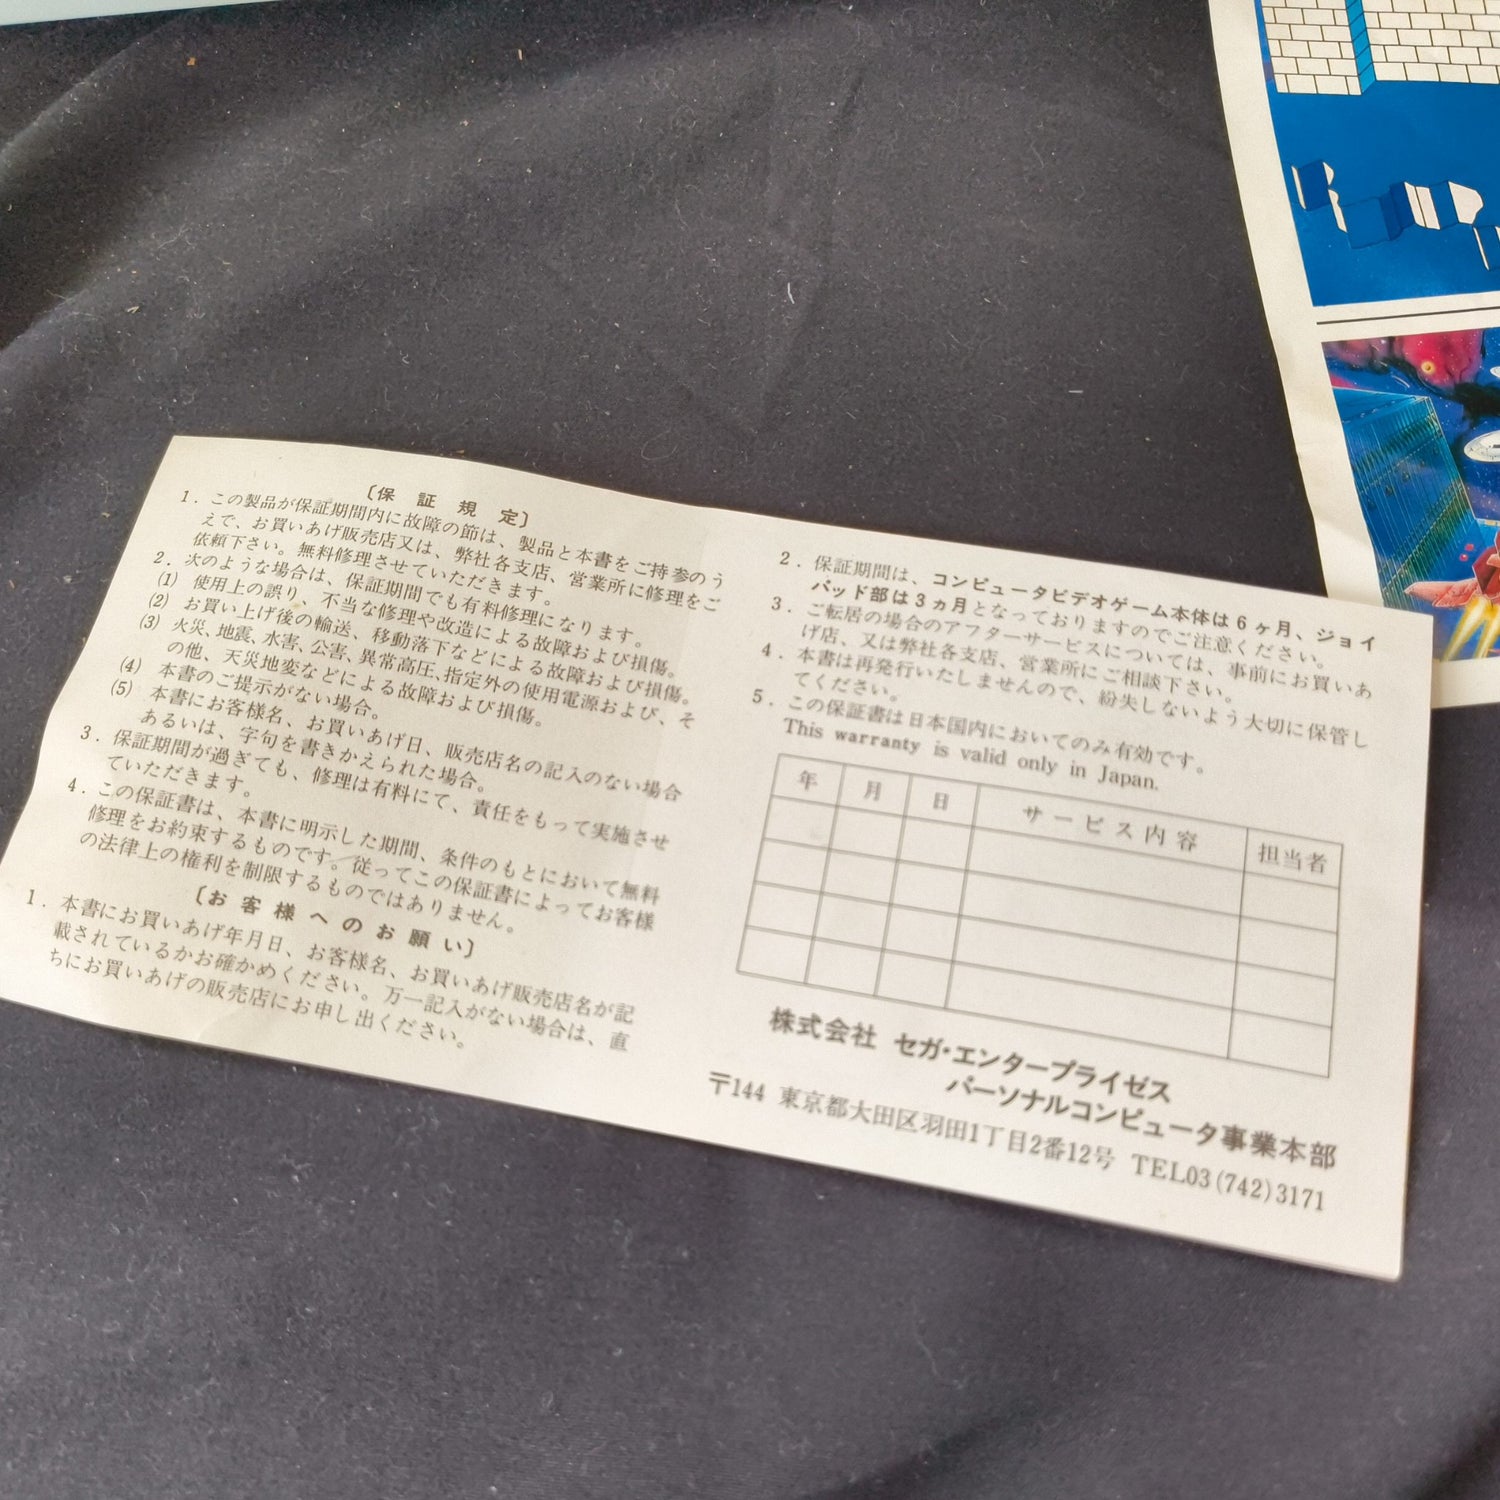 〔保証規定〕
1．この製品が保証期間内に故障の節は、製品と本書をご持参のう
えで、お買いあげ販売店又は、弊社各支店、営業所に修理をご
依頼下さい。無料修理させていただきます。
2．次のような場合は、保証期間でも有料修理になります。
(1) 使用上の誤り、不当な修理や改造による故障および損傷。
(2) お買い上げ後の輸送、移動落下などによる故障および損傷。
(3) 火災、地震、水害、公害、異常高圧、指定外の使用電源および、そ
の他、天災地変などによる故障および損傷。
(4) 本書のご提示がない場合。
(5) 本書にお客様名、お買いあげ日、販売店名の記入のない場合
あるいは、字句を書きかえられた場合。
3．保証期間が過ぎても、修理は有料にて、責任をもって実施させ
ていただきます。
4．この保証書は、本書に明示した期間、条件のもとにおいて無料
修理をお約束するものです。従ってこの保証書によってお客様
の法律上の権利を制限するものではありません。
〔お客様へのお願い〕
1．本書にお買いあげ年月日、お客様名、お買いあげ販売店名が記
載されているかお確かめください。万一記入がない場合は、直
ちにお買いあげの販売店にお申し出ください。
2．保証期間は、コンピュータビデオゲーム本体は6ヶ月、ジョイ
パッド部は3ヵ月となっておりますのでご注意ください。
3．ご転居の場合のアフターサービスについては、事前にお買いあ
げ店、又は弊社各支店、営業所にご相談下さい。
4．本書は再発行いたしませんので、紛失しないよう大切に保管し
てください。
5．この保証書は日本国内においてのみ有効です。
This warranty is valid only in Japan.
年 月 日 サービス内容 担当者
株式会社 セガ・エンタープライゼス
パーソナルコンピュータ事業本部
〒144 東京都大田区羽田1丁目2番12号 TEL03(742)3171